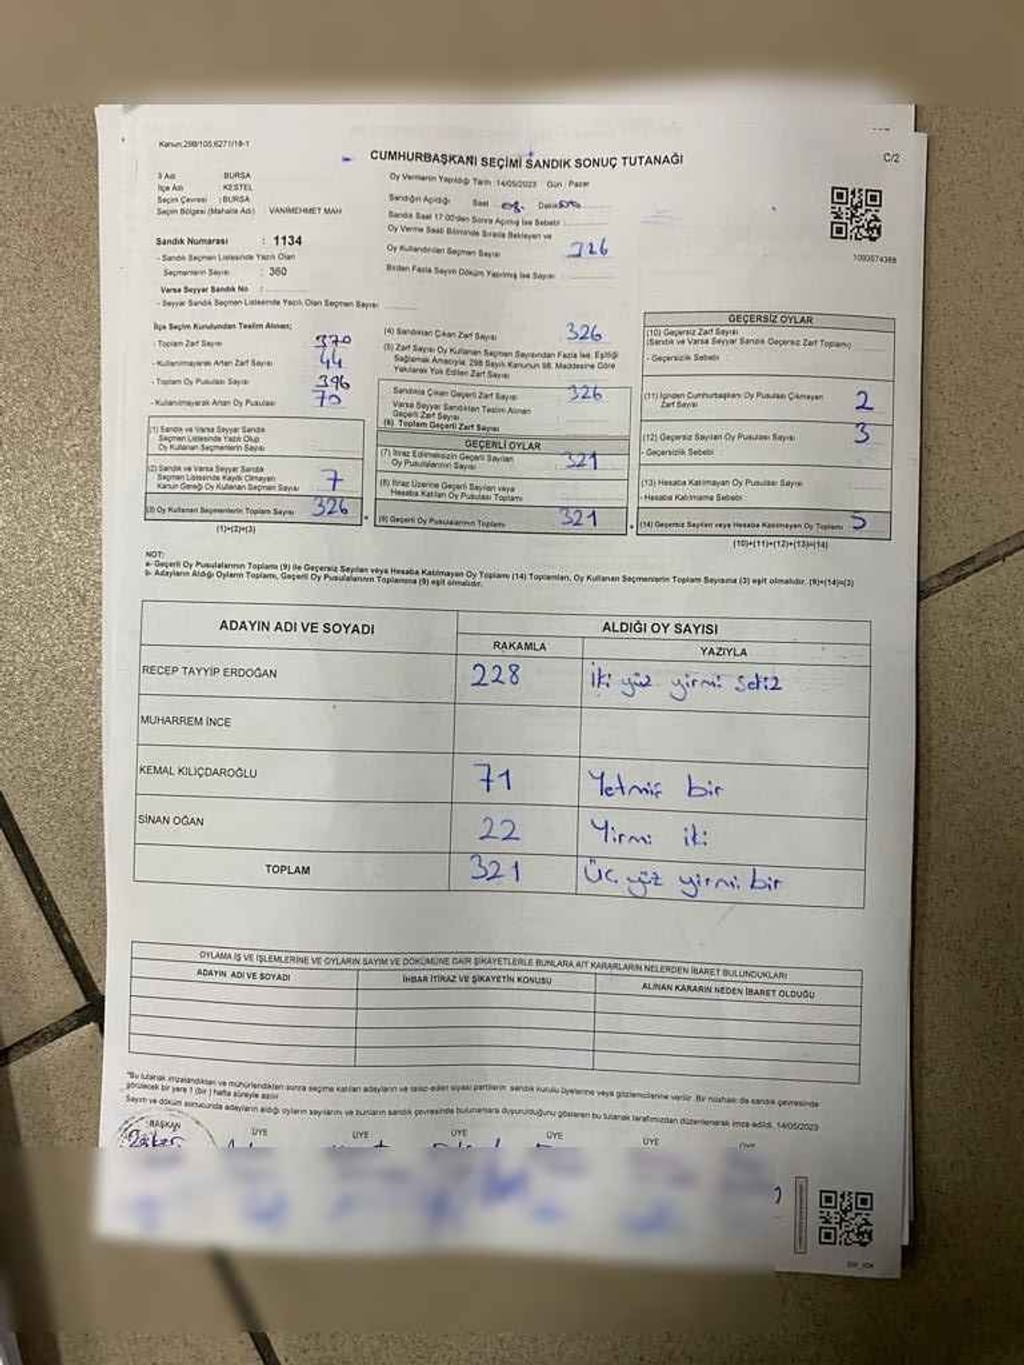 Kanun:298/105,6271/18-1
CUMHURBAŞKANI SEÇİMİ SANDIK SONUÇ TUTANAĞI
C/2
BURSA
İlçe Adı KESTEL
Seçim Çevresi : BURSA
Seçim Bölgesi (Mahalle Adı) VANİMEHMET MAH
Oy Vermenin Yapıldığı Tarih :14/05/2023 Gün : Pazar
Sandığın Açıldığı Saat 08. Dakika
Sandık Saat 17:00'den Sonra Açılmış İse Sebebi :
Oy Verme Saati Bitiminde Sırada Bekleyen ve
Oy Kullandırılan Seçmen Sayısı 326
Birden Fazla Sayım Döküm Yapılmış İse Sayısı :
Sandık Numarası : 1134
- Sandık Seçmen Listesinde Yazılı Olan
Seçmenlerin Sayısı : 360
Varsa Seyyar Sandık No :
- Seyyar Sandık Seçmen Listesinde Yazılı Olan Seçmen Sayısı
İlçe Seçim Kurulundan Teslim Alınan;
- Toplam Zarf Sayısı 370
- Kullanılmayarak Artan Zarf Sayısı 44
- Toplam Oy Pusulası Sayısı 396
- Kullanılmayarak Artan Oy Pusulası 70
(1) Sandık ve Varsa Seyyar Sandık
Seçmen Listesinde Yazılı Olup
Oy Kullanan Seçmenlerin Sayısı
(2) Sandık ve Varsa Seyyar Sandık
Seçmen Listesinde Kaydı Olmayan
Kanun Gereği Oy Kullanan Seçmen Sayısı 7
(3) Oy Kullanan Seçmenlerin Toplam Sayısı 326
(1)+(2)=(3)
(4) Sandıktan Çıkan Zarf Sayısı 326
(5) Zarf Sayısı Oy Kullanan Seçmen Sayısından Fazla İse, Eşitliği
Sağlamak Amacıyla, 298 Sayılı Kanunun 98. Maddesine Göre
Yakılarak Yok Edilen Zarf Sayısı
Sandıkta Çıkan Geçerli Zarf Sayısı 326
Varsa Seyyar Sandıktan Teslim Alınan
Geçerli Zarf Sayısı
(6) Toplam Geçerli Zarf Sayısı
GEÇERLİ OYLAR
(7) İtiraz Edilmeksizin Geçerli Sayılan
Oy Pusulalarının Sayısı 321
(8) İtiraz Üzerine Geçerli Sayılan veya
Hesaba Katılan Oy Pusulası Toplamı
(9) Geçerli Oy Pusulalarının Toplamı 321
GEÇERSİZ OYLAR
(10) Geçersiz Zarf Sayısı
(Sandık ve Varsa Seyyar Sandık Geçersiz Zarf Toplamı)
- Geçersizlik Sebebi
(11) İçinden Cumhurbaşkanı Oy Pusulası Çıkmayan
Zarf Sayısı 2
(12) Geçersiz Sayılan Oy Pusulası Sayısı 3
- Geçersizlik Sebebi
(13) Hesaba Katılmayan Oy Pusulası Sayısı
- Hesaba Katılmama Sebebi
(14) Geçersiz Sayılan veya Hesaba Katılmayan Oy Toplamı 5
(10)+(11)+(12)+(13)=(14)
NOT:
a- Geçerli Oy Pusulalarının Toplamı (9) ile Geçersiz Sayılan veya Hesaba Katılmayan Oy Toplamı (14) Toplamları, Oy Kullanan Seçmenlerin Toplam Sayısına (3) eşit olmalıdır. (9)+(14)=(3)
b- Adayların Aldığı Oyların Toplamı, Geçerli Oy Pusulalarının Toplamına (9) eşit olmalıdır.
ADAYIN ADI VE SOYADI ALDIĞI OY SAYISI
RAKAMLA YAZIYLA
RECEP TAYYİP ERDOĞAN 228 İki yüz yirmi sekiz
MUHARREM İNCE
KEMAL KILIÇDAROĞLU 71 Yetmiş bir
SİNAN OĞAN 22 Yirmi iki
TOPLAM 321 Üç yüz yirmi bir
OYLAMA İŞ VE İŞLEMLERİNE VE OYLARIN SAYIM VE DÖKÜMÜNE DAİR ŞİKAYETLERLE BUNLARA AİT KARARLARIN NELERDEN İBARET BULUNDUKLARI
ADAYIN ADI VE SOYADI İHBAR İTİRAZ VE ŞİKAYETİN KONUSU ALINAN KARARIN NEDEN İBARET OLDUĞU
*Bu tutanak imzalandıktan ve mühürlendikten sonra seçime katılan adayların ve talep eden siyasi partilerin sandık kurulu üyelerine veya gözlemcilerine verilir. Bir nüshası da sandık çevresinde
görülecek bir yere 1 (bir) hafta süreyle asılır
Sayım ve döküm sonucunda adayların aldığı oyların sayılarını ve bunların sandık çevresinde bulunanlara duyurulduğunu gösteren bu tutanak tarafımızdan düzenlenerek imza edildi. 14/05/2023
BAŞKAN ÜYE ÜYE ÜYE ÜYE ÜYE